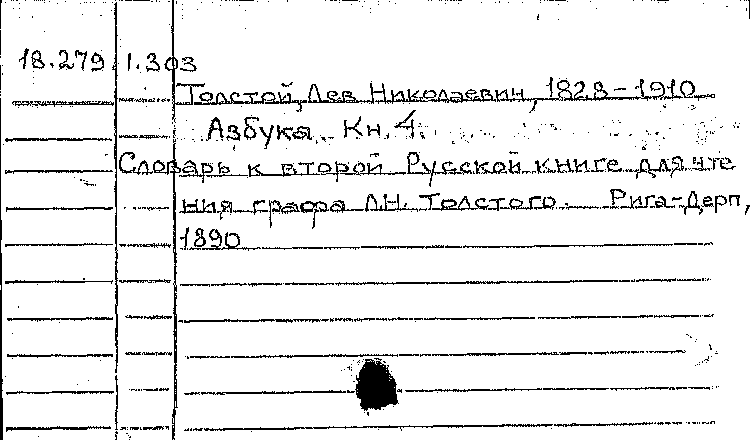 18.279 1.303
Толстой, Лев Николаевич, 1828-1910
Азбука. Кн. 4.
Словарь к второй Русской книге для чте
ния графа Л.Н. Толстого. Рига-Дерп,
1890